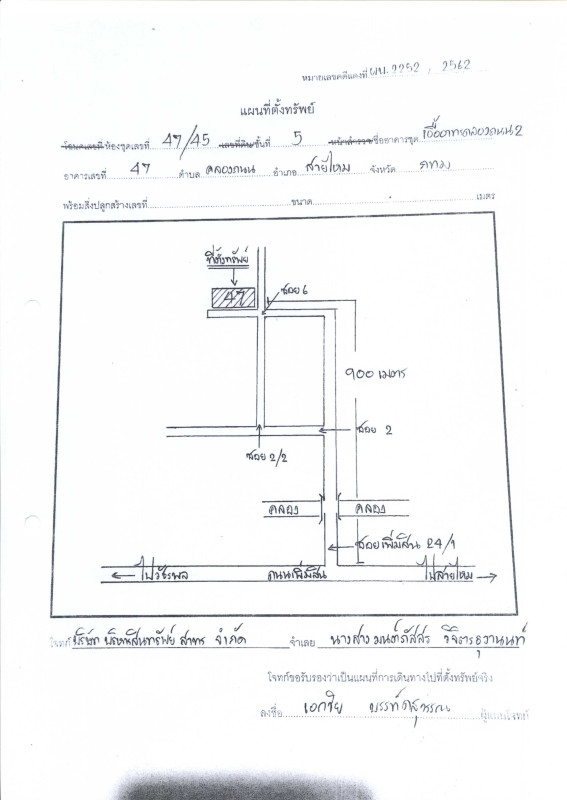 หมายเลขคดีแดงที่ ผบ. 2252 / 2562
แผนที่ตั้งทรัพย์
โฉนดเลขที่ ห้องชุดเลขที่ 47/45 เลขที่ดิน ชั้นที่ 5 หน้าสำรวจ ชื่ออาคารชุด เอื้ออาทรคลองถนน 2
อาคารเลขที่ 47 ตำบล คลองถนน อำเภอ สายไหม จังหวัด กทม
พร้อมสิ่งปลูกสร้างเลขที่ ขนาด เมตร
ที่ตั้งทรัพย์
47
ซอย 6
900 เมตร
ซอย 2
ซอย 2/2
คลอง คลอง
ซอยเพิ่มสิน 24/1
ไปวัชรพล ถนนเพิ่มสิน ไปสายไหม
โจทก์ บริษัท บริหารสินทรัพย์ สาทร จำกัด จำเลย นางสาวมนต์ภัสสร
โจทก์ขอรับรองว่าเป็นแผนที่การเดินทางไปที่ตั้งทรัพย์จริง
ลงชื่อ เอกชัย ผู้แทนโจทก์